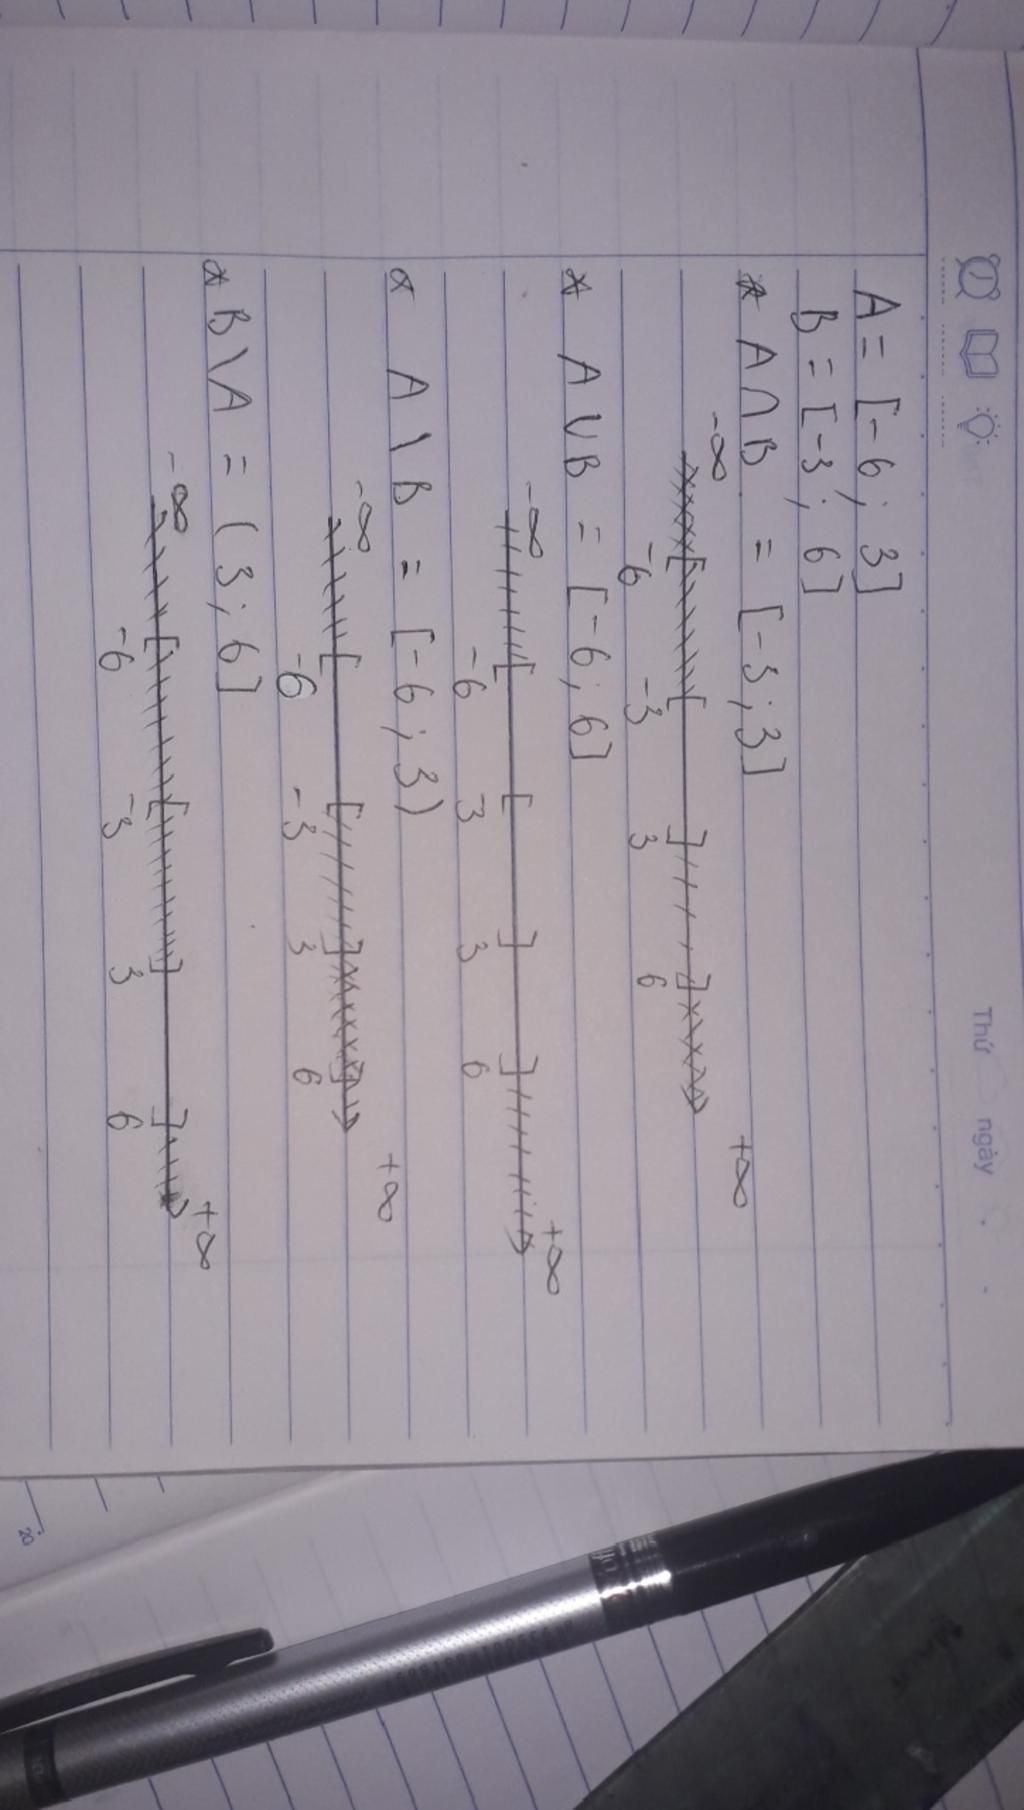 Thứ ngày
A = [-6; 3]
B = [-3; 6]
* A∩B = [-3; 3]
-∞ +∞
-6 -3 3 6
* A∪B = [-6; 6]
-∞ +∞
-6 -3 3 6
* A \ B = [-6; 3)
-∞ +∞
-6 -3 3 6
* B \ A = (3; 6]
-∞ +∞
-6 -3 3 6
20